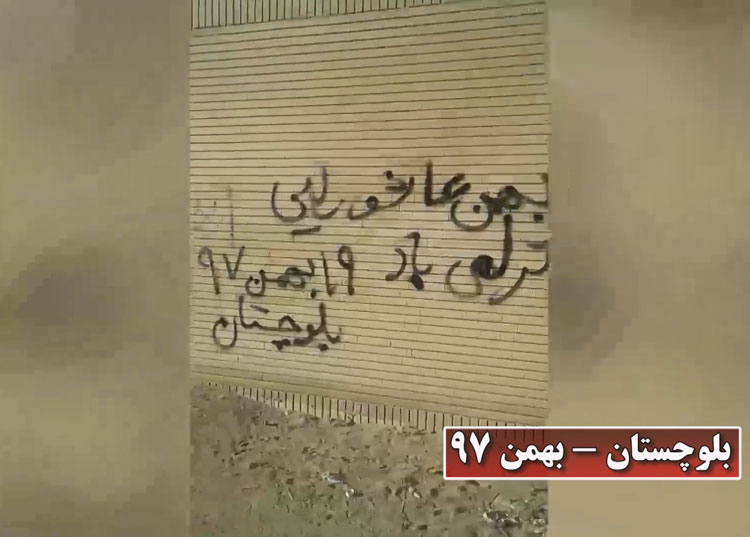 بهمن عاشورایی
گرامی باد ۱۹ بهمن ۹۷
بلوچستان
بلوچستان – بهمن ۹۷